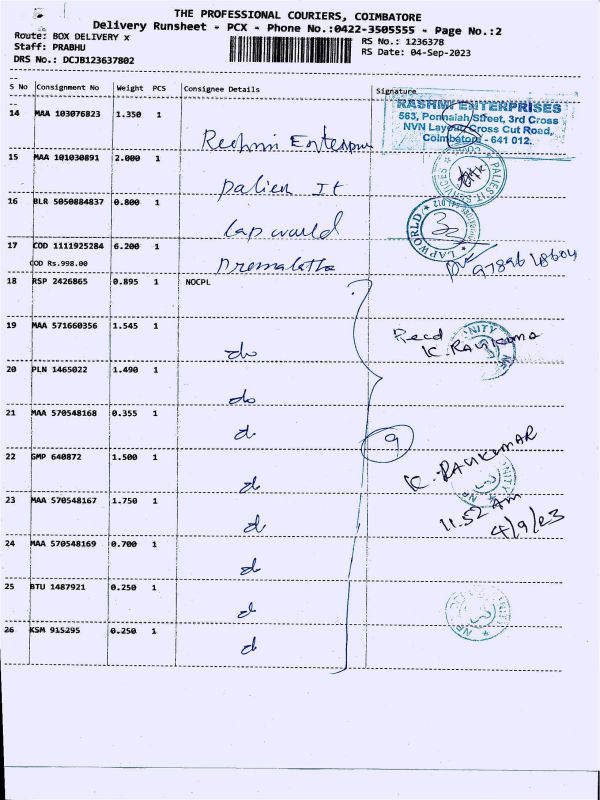 THE PROFESSIONAL COURIERS, COIMBATORE
Delivery Runsheet - PCX - Phone No.:0422-3505555 - Page No.:2
Route: BOX DELIVERY x
RS No.: 1236378
Staff: PRABHU
RS Date: 04-Sep-2023
DRS No.: DCJB123637802
S No Consignment No Weight PCS Consignee Details Signature
14 MAA 103076823 1.350 1
RASHMI ENTERPRISES
563, Ponnaiah Street, 3rd Cross
NVN Layout, Cross Cut Road,
Coimbatore - 641 012.
15 MAA 101030891 2.000 1
Palien It
PALIES IT SERVICES
16 BLR 5050884837 0.800 1
Lap world
LAPWORLD
17 COD 1111925284 6.200 1
COD Rs.998.00
Premalatha
9789618604
18 RSP 2426865 0.895 1 NOCPL
19 MAA 571660356 1.545 1
do
Recd
K. RAVIKUMAR
20 PLN 1465022 1.490 1
do
21 MAA 570548168 0.355 1
d
9
22 GMP 640872 1.500 1
d
K. RAVIKUMAR
23 MAA 570548167 1.750 1
d
11.52 Am
4/9/23
24 MAA 570548169 0.700 1
d
25 BTU 1487921 0.250 1
d
26 KSM 915295 0.250 1
d